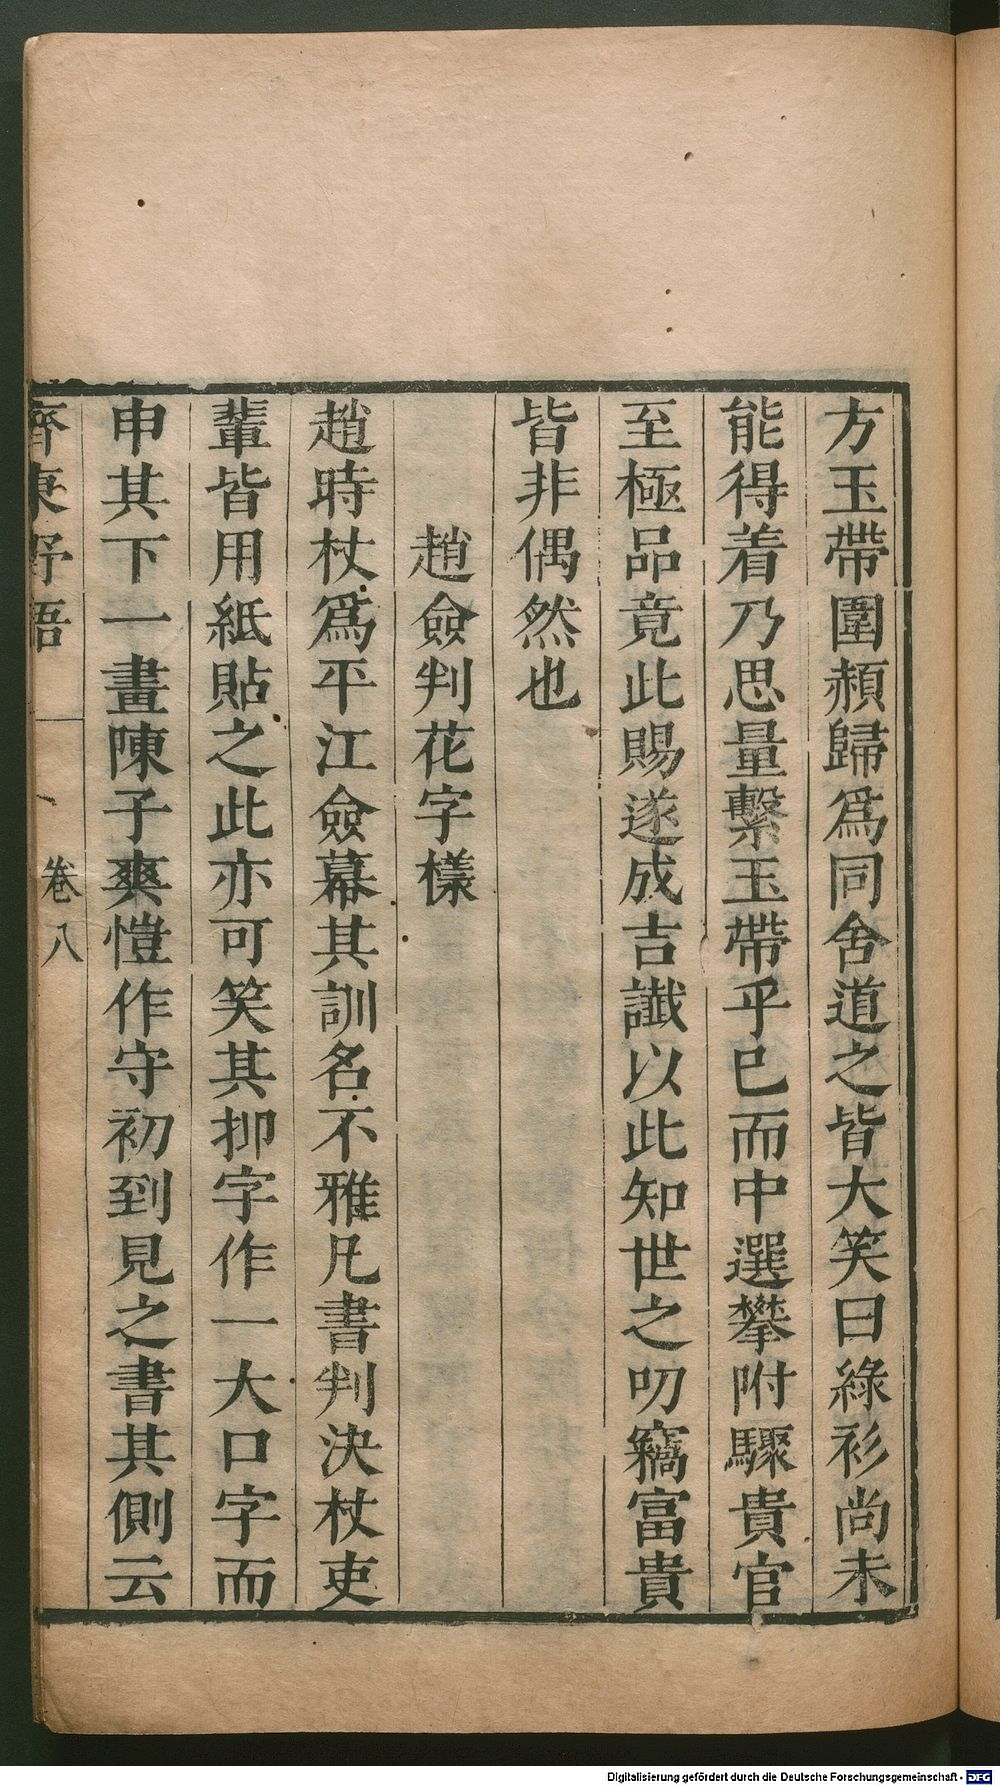 方玉帶圍頳歸爲同舍道之皆大笑曰綠衫尚未
能得着乃思量繫玉帶乎已而中選攀附驟貴官
至極品竟此賜遂成吉讖以此知世之叨竊富貴
皆非偶然也
趙僉判花字樣
趙時杖爲平江僉幕其訓名不雅凡書判決杖吏
輩皆用紙貼之此亦可笑其押字作一大口字而
申其下一畫陳子爽愷作守初到見之書其側云
齊東野語 卷八
Digitalisierung gefördert durch die Deutsche Forschungsgemeinschaft - DFG